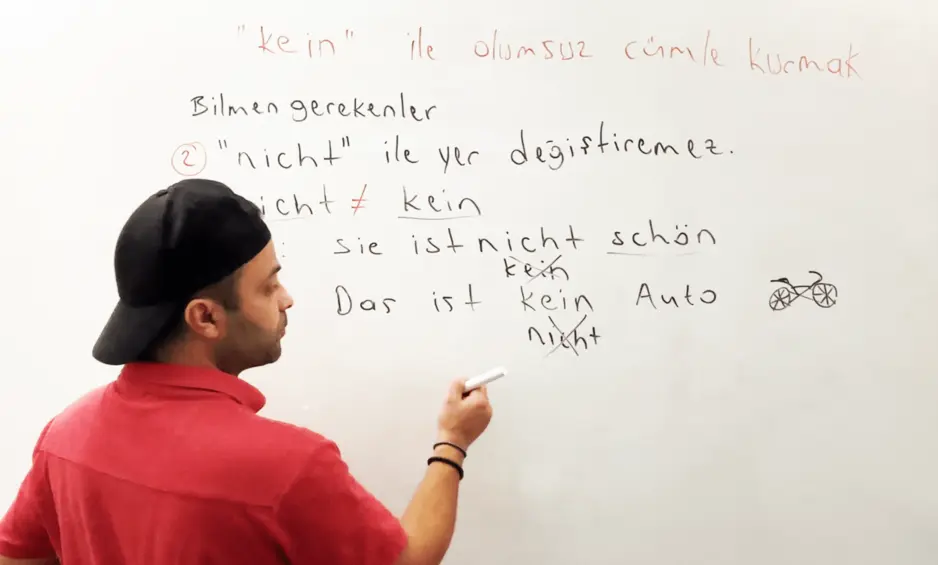 "kein" ile olumsuz cümle kurmak
Bilmen gerekenler
② "nicht" ile yer değiştiremez.
icht ≠ kein
: sie ist nicht schön
kein
Das ist kein Auto
nicht